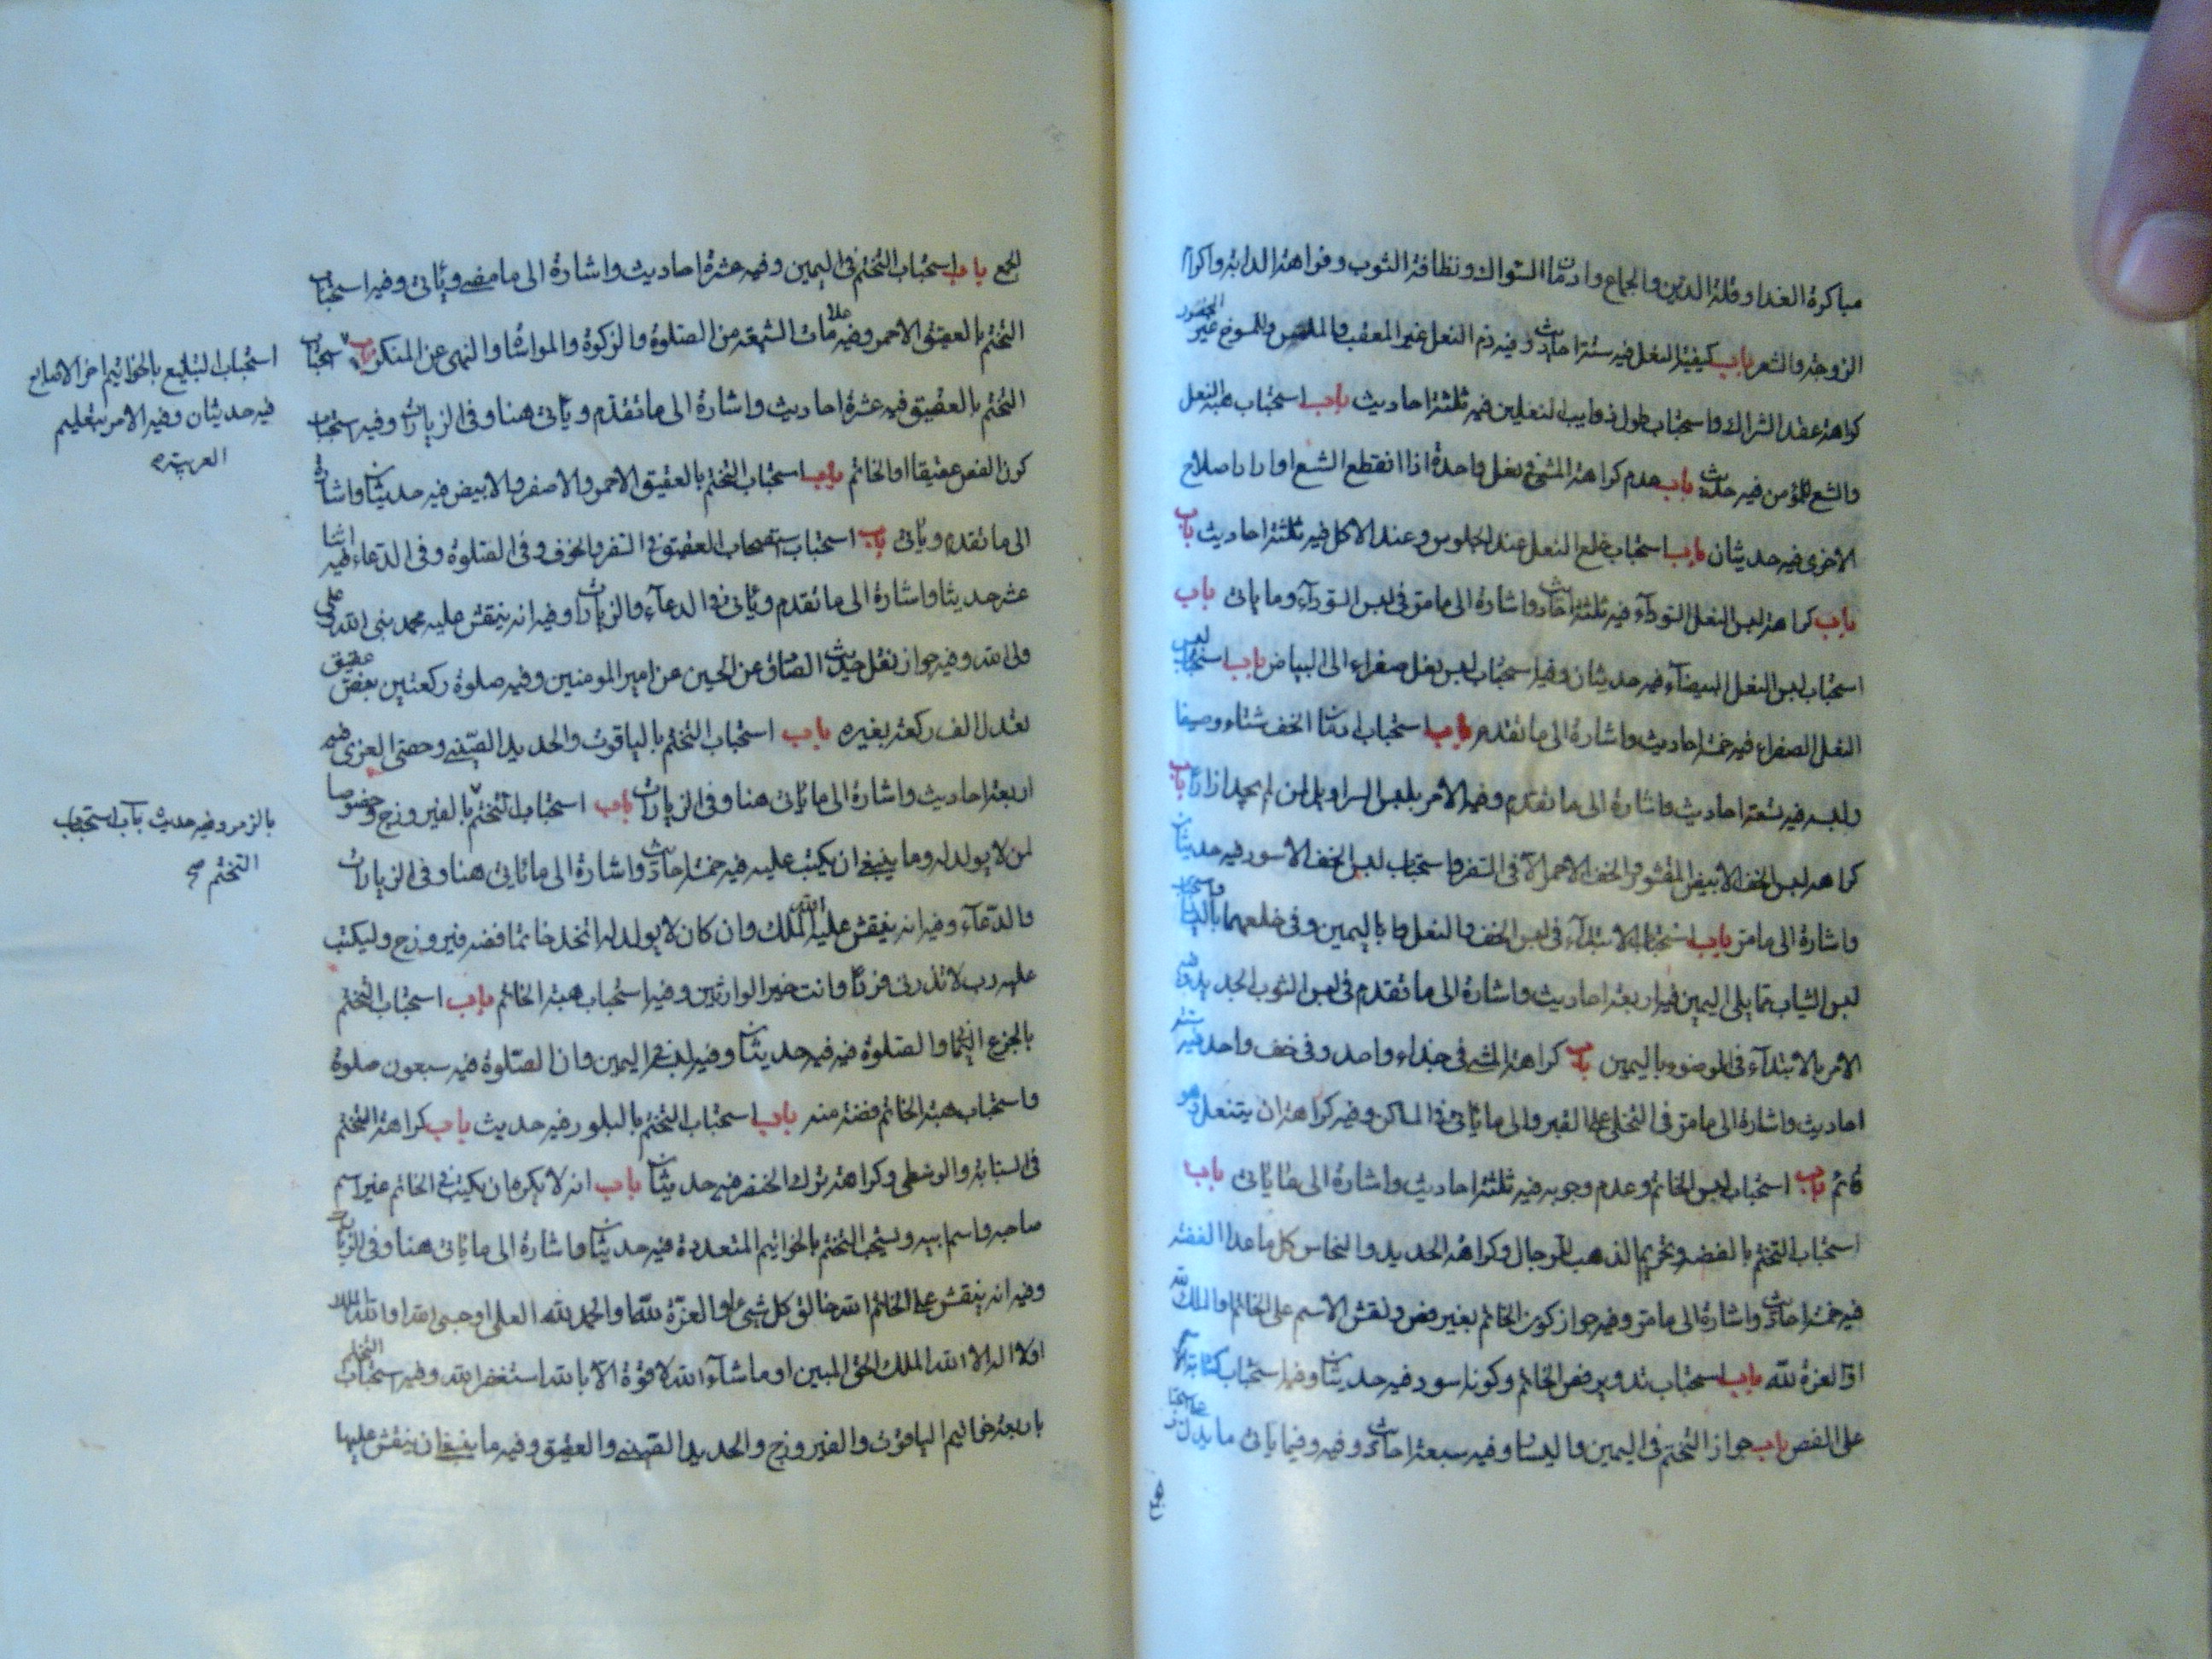 مباكرة الغدا وقلة الدين والجماع وادمان السواك ونظافة الثوب وفراهة الدابة واكرام
الزوجة والشعر باب كيفية النعل فيه ستة احاديث وفيه ذم النعل غير المعقب والملس والممسوح غير المخصور
كراهة عقد الشراك واستحباب طول ذوايب النعلين فيه ثلثة احاديث باب استحباب هبة النعل
والشسع للمؤمن فيه حديث باب عدم كراهة المشي في نعل واحدة اذا انقطع الشسع او اراد اصلاح
الاخرى فيه حديثان باب استحباب خلع النعل عند الجلوس وعند الاكل فيه ثلثة احاديث باب
باب كراهة لبس النعل السوداء فيه ثلثة احاديث واشارة الى ما مر في لبس السوداء وما ياتي باب
استحباب لبس النعل البيضاء فيه حديثان وفيه استحباب لبس نعل صفراء الى البياض باب استحباب لبس
النعل الصفراء فيه خمسة احاديث واشارة الى ما تقدم باب استحباب ادمان الخف شتاء وصيفا
ولبسه فيه تسعة احاديث واشارة الى ما تقدم وفيه الامر بلبس السراويل لمن لم يجد ازارا باب
كراهة لبس الخف الابيض المقشور والخف الاحمر الا في السفر واستحباب لبس الخف الاسود فيه حديثان
واشارة الى ما مر باب استحباب الابتداء في لبس الخف والنعل باليمين وفي خلعهما باليسار واستحباب
لبس الثياب مما يلي اليمين فيه اربعة احاديث واشارة الى ما تقدم في لبس الثوب الجديد وفيه
الامر بالابتداء في الوضوء باليمين باب كراهة المشي في حذاء واحد وفي خف واحد فيه ستة
احاديث واشارة الى ما مر في التخلي على القبر والى ما ياتي في المساكن وفيه كراهة ان يتنعل وهو
قائم باب استحباب لبس الخاتم وعدم وجوبه فيه ثلثة احاديث واشارة الى ما ياتي باب
استحباب التختم بالفضة وتحريم الذهب للرجال وكراهة الحديد والنحاس كل ما عدا الفضة
فيه خمسة احاديث واشارة الى ما مر وفيه جواز كون الخاتم بغير فص ونقش الاسم على الخاتم والملك لله
او العزة لله باب استحباب تدوير فص الخاتم وكونه اسود فيه حديثان وفيه استحباب كتابة
على الفص باب جواز التختم في اليمين واليسار وفيه سبعة احاديث وفيه وفيما ياتي ما يدل على استحباب
الجمع باب استحباب التختم في اليمين وفيه عشرة احاديث واشارة الى ما مضى وياتي وفيه استحباب
التختم بالعقيق الاحمر وفيه علامات الشيعة من الصلوة والزكوة والمواساة والنهى عن المنكر باب استحباب
التختم بالعقيق فيه عشرة احاديث واشارة الى ما تقدم وياتي هنا وفي الزيارات وفيه استحباب
كون الفص عقيقا او الخاتم باب استحباب التختم بالعقيق الاحمر والاصفر والابيض فيه حديثان واشارة
الى ما تقدم وياتي باب استحباب استصحاب العقيق في السفر والخوف وفي الصلوة وفي الدعاء فيه اثنا
عشر حديثا واشارة الى ما تقدم وياتي في الدعاء والزيارات وفيه انه ينقش عليه محمد نبي الله وعلى
ولى الله وفيه جواز نقل حديث الصادق عن الحسين عن امير المومنين وفيه صلوة ركعتين بفص عقيق
تعدل الف ركعة بغيره باب استحباب التختم بالياقوت والحديد الصيني وحصى الغري فيه
اربعة احاديث واشارة الى ما ياتي هنا وفي الزيارات باب استحباب التختم بالفيروزج وخصوصا
لمن لا يولد له وما ينبغي ان يكتب عليه فيه خمسة احاديث واشارة الى ما ياتي هنا وفي الزيارات
والدعاء وفيه انه ينقش عليه الله الملك وان كان لا يولد له اتخذ خاتما فضه فيروزج وليكتب
عليه رب لا تذرني فردا وانت خير الوارثين وفيه استحباب هبة الخاتم باب استحباب التختم
بالجزع اليماني والصلوة فيه فيه حديثان وفيه لبسه في اليمين وان الصلوة فيه سبعون صلوة
واستحباب هبة الخاتم فضة منه باب استحباب التختم بالبلور فيه حديث باب كراهة التختم
في السبابة والوسطى وكراهة ترك الخنصر فيه حديثان باب انه لا يكره ان يكتب في الخاتم غير اسم
صاحبه واسم ابيه ويستحب التختم بالخواتيم المتعددة فيه حديثان واشارة الى ما ياتي هنا وفي الزيارات
وفيه انه ينقش على الخاتم الله خالق كل شيئ او العزة لله او الحمد لله العلى او حسبي الله او الله الملك
او لا اله الا الله الملك الحق المبين او ما شاء الله لا قوة الا بالله استغفر الله وفيه استحباب التختم
باربعة خواتيم الياقوت والفيروزج والحديد الصيني والعقيق وفيه ما ينبغي ان ينقش عليها
استحباب التبليغ بالخواتيم اخر الاصابع
فيه حديثان وفيه الامر بتعليم
العربية صح
بالزمرد وفيه حديث باب استحباب
التختم صح